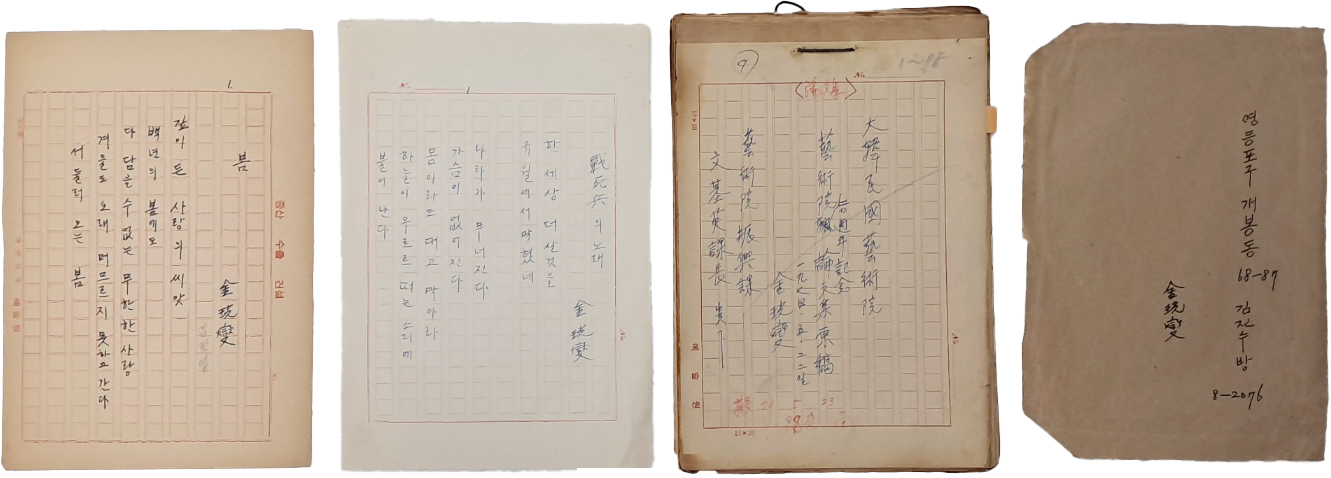 1.
봄
金珖燮
깊이 든 사랑의 씨앗
백년의 봄에도
다 담을 수 없는 무한한 사랑
겨울도 오래 머므르지 못하고 간다
서둘러 오는 봄
증산 수출 건설
예술원
No. 1
戰死兵의 노래
金珖燮
한 세상 더 살 것을
유월에서 막혔네
나라가 무너진다
가슴이 없어진다
몸이라도 대고 막아라
하늘이 우르르 떠는 소리에
불이 난다
No.
④
1~98
No.
大韓民國藝術院
藝術院 論文集原稿
一九七四·五·二二일
金珖燮
藝術院 振興課
文基英課長 貴下
예술원
10×20
영등포구 개봉동
68-87
김진수 방
8-2076
金珖燮